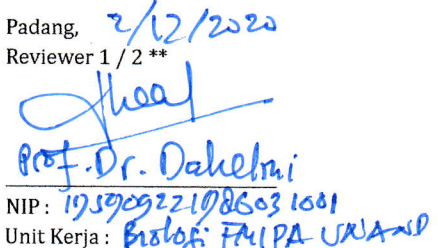 Padang, 2/12/2020
Reviewer 1 / 2 **
Prof. Dr. Dahelmi
NIP : 195909221986031001
Unit Kerja : Biologi FMIPA UNAND